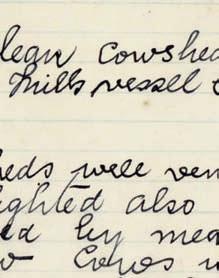 lean cowshed
milk vessel
heds well ven
ighted also
ed by mea
Cows